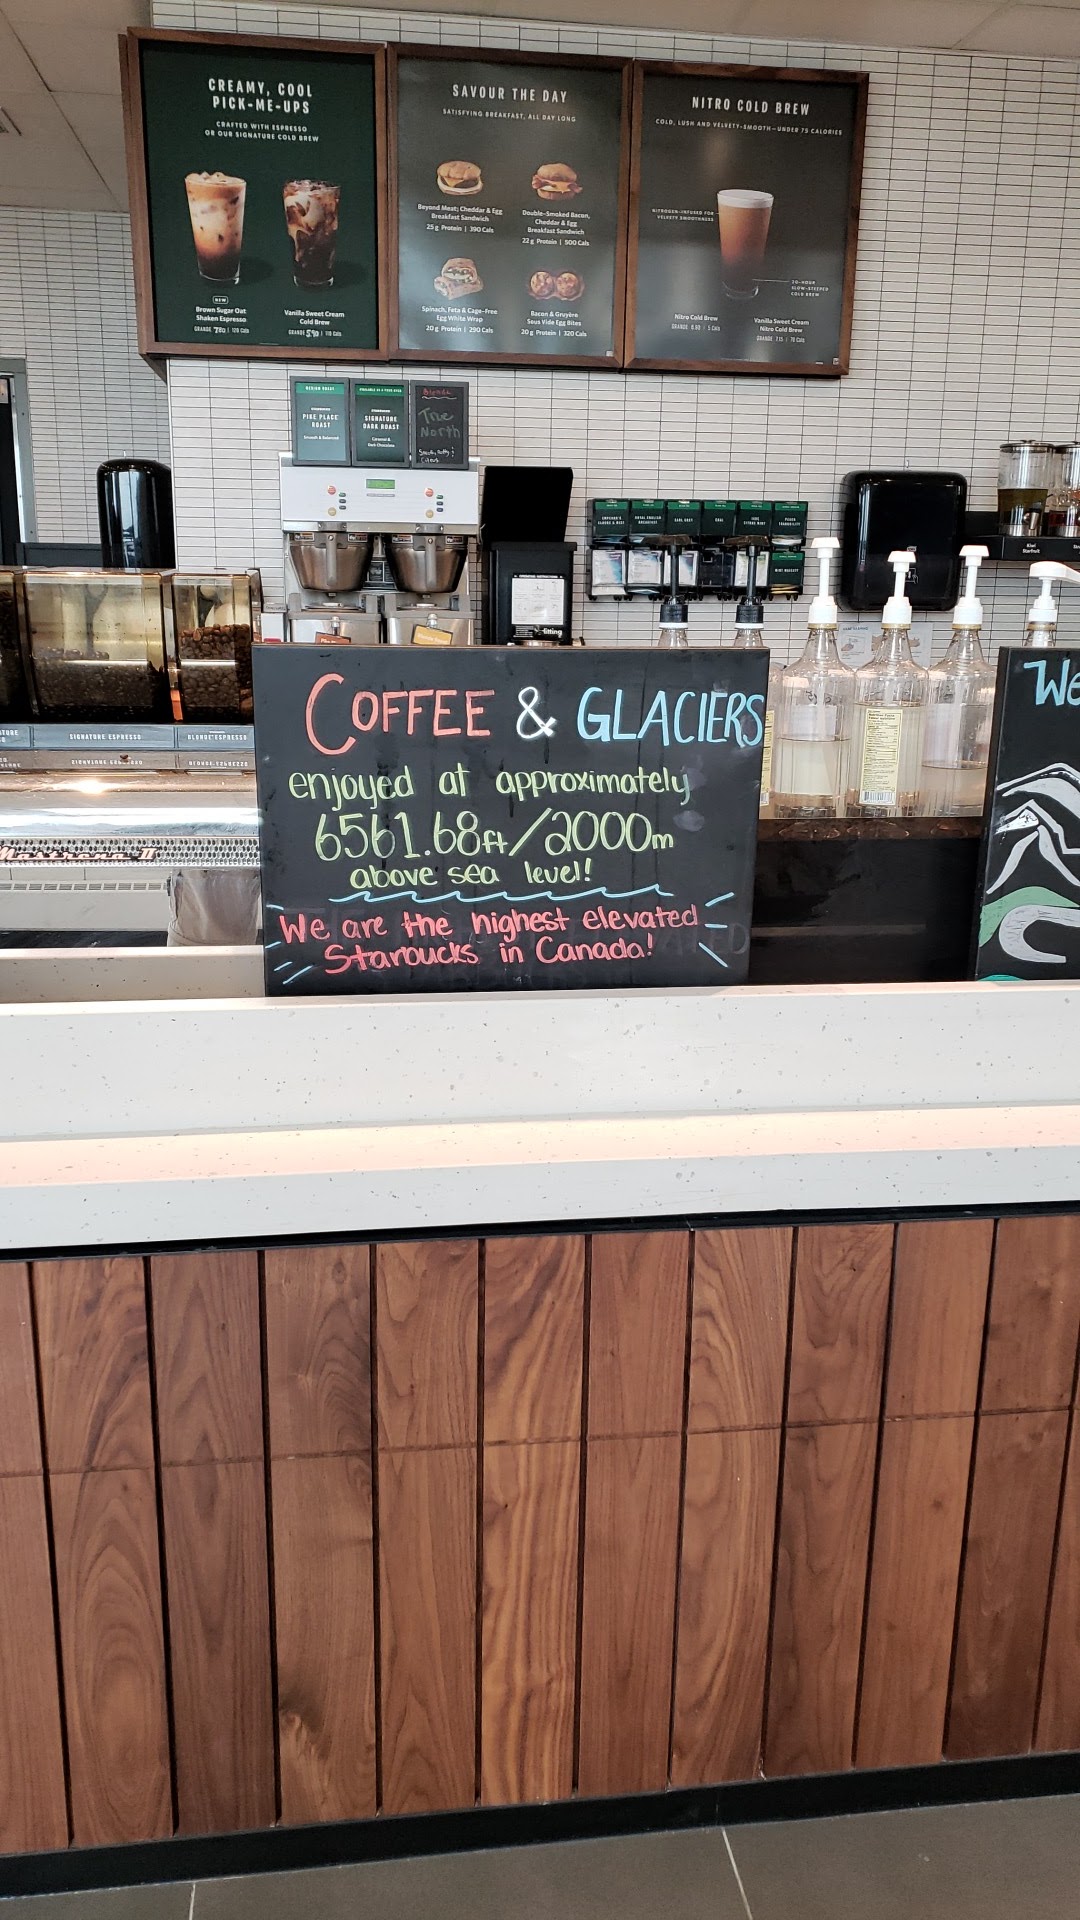 CREAMY, COOL
PICK-ME-UPS
CRAFTED WITH ESPRESSO
OR OUR SIGNATURE COLD BREW
NEW
Brown Sugar Oat
Shaken Espresso
GRANDE | 120 Cals
Vanilla Sweet Cream
Cold Brew
GRANDE 5.90 | 110 Cals
SAVOUR THE DAY
SATISFYING BREAKFAST, ALL DAY LONG
Beyond Meat, Cheddar & Egg
Breakfast Sandwich
25 g Protein | 390 Cals
Double-Smoked Bacon,
Cheddar & Egg
Breakfast Sandwich
22 g Protein | 500 Cals
Spinach, Feta & Cage-Free
Egg White Wrap
20 g Protein | 290 Cals
Bacon & Gruyère
Sous Vide Egg Bites
20 g Protein | 320 Cals
NITRO COLD BREW
COLD, LUSH AND VELVETY-SMOOTH—UNDER 75 CALORIES
NITROGEN-INFUSED FOR
VELVETY SMOOTHNESS
20-HOUR
SLOW-STEEPED
COLD BREW
Nitro Cold Brew
GRANDE | 5 Cals
Vanilla Sweet Cream
Nitro Cold Brew
GRANDE | 70 Cals
MEDIUM ROAST
PIKE PLACE
ROAST
Smooth & Balanced
SIGNATURE
DARK ROAST
Caramel &
Dark Chocolate
Blonde
True
North
EARL GREY
CHAI
MINT MAJESTY
Kiwi
Starfruit
SIGNATURE ESPRESSO
BLONDE ESPRESSO
Mastrena II
COFFEE & GLACIERS
enjoyed at approximately
6561.68ft/2000m
above sea level!
We are the highest elevated
Starbucks in Canada!
We